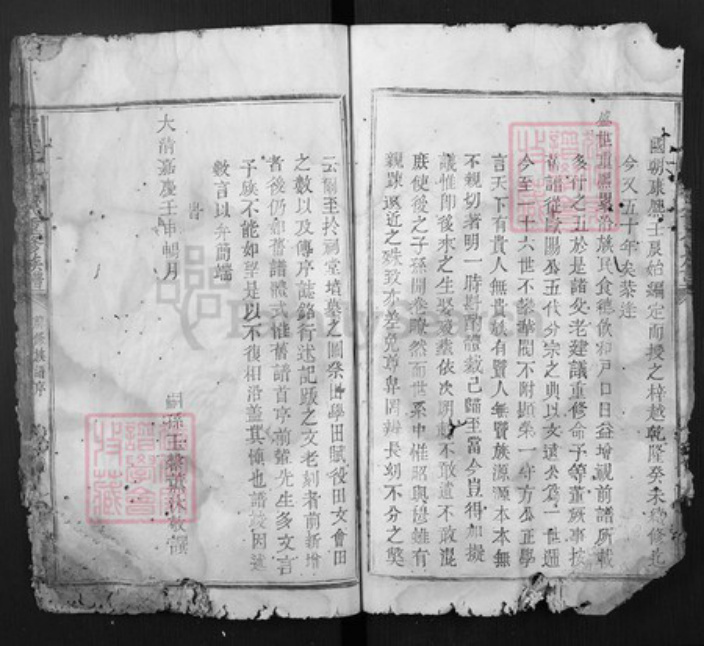 國朝康熙壬辰始編定而授之梓越乾隆癸未續修迄
今又五十年矣恭逢
盛世重熙累洽族民食德飲和戶口日益增視前譜所載
多什之五於是諸父老建議重修命予等董厥事按
舊譜從歐陽公五代分宗之典以文遠公為一世遞
今至二十六世不攀華閥不附顯第一守方公正學
言天下有貴人無貴族有賢人無賢族源源本本無
不親切著明一時斟酌體裁已歸至當今豈得加擬
議惟即後來之生娶葬依次明載不敢遺不敢混
庶使後之子孫開卷瞭然而世系中惟昭與穆雖有
親疎遠近之殊致亦差免尊卑罔辨長幼不分之獘
云爾至於祠堂墳墓之圖祭田學田賦役田文會田
之數以及傳序誌銘行述記跋之文老刻者前新增
者後仍如舊譜體式惟舊譜首序前輩先生多文言
予族不能如望是以不復相沿蓋其慎也譜竣因述
數言以弁簡端
時
大清嘉慶壬申暢月
嗣孫玉